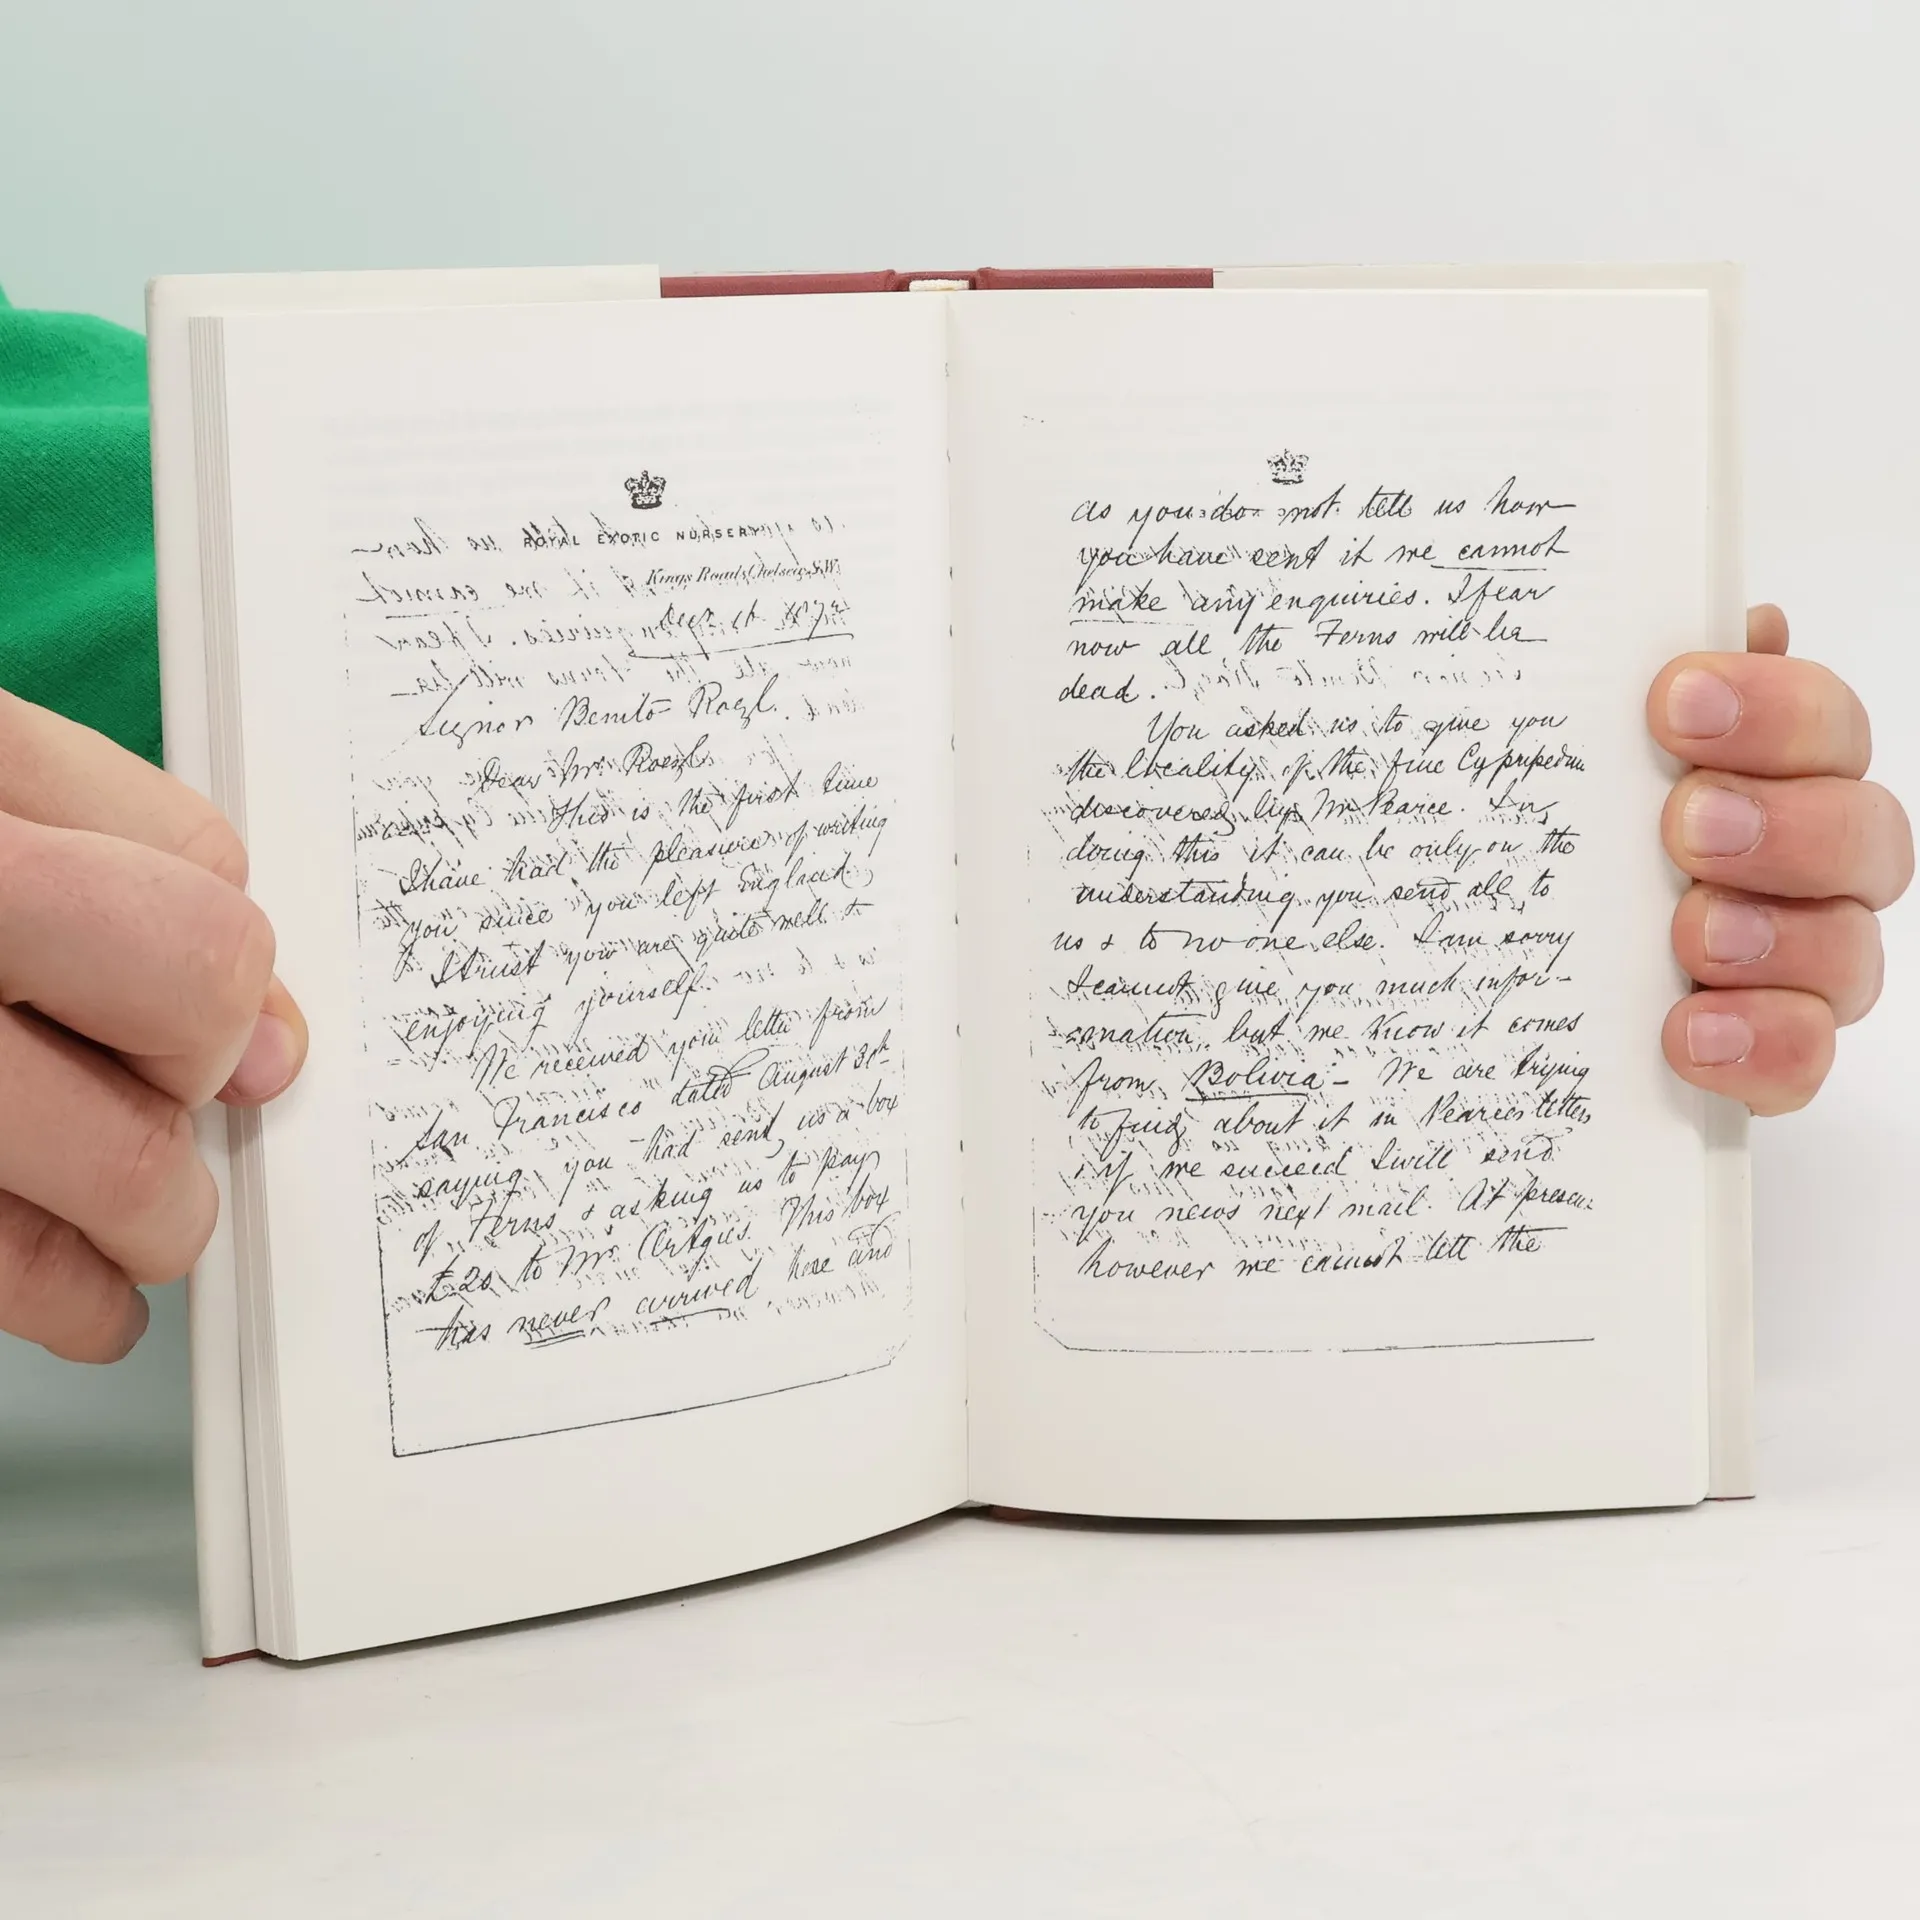 ROYAL EXOTIC NURSERY
Kings Road, Chelsea, S.W.
Signor Benito Roezl.
Dear Mr Roezl
This is the first time
I have had the pleasure of writing
you since you left England,
& I trust you are quite well &
enjoying yourself.
We received your letter from
San Francisco dated August 30th
saying you had send us a box
of Ferns & asking us to pay
£20 to Mr This box
has never arrived here and
as you do not tell us how
you have sent it we cannot
make any enquiries. I fear
now all the Ferns will be
dead.
You asked us to give you
the locality of the fine Cypripedium
discovered by Mr Pearce. In
doing this it can be only on the
understanding you send all to
us & to no one else. I am sorry
I cannot give you much infor-
mation, but we know it comes
from Bolivia - We are trying
to find about it in Pearces letters
if we succeed I will send
you news next mail. At present
however we cannot tell the